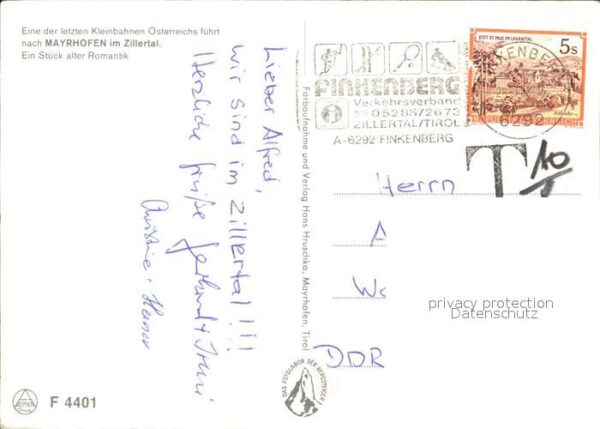 Eine der letzten Kleinbahnen Österreichs führt
nach MAYRHOFEN im Zillertal.
Ein Stück alter Romantik
Lieber Alfred,
wir sind im Zillertal!!!
Herzliche Grüße Gerhard + Irmi
Christine + Heiner
F 4401
Farbaufnahme und Verlag Hans Hruschka, Mayrhofen, Tirol
DAS FOTOLABOR DER BERGSTEIGER
FINKENBERG
Verkehrsverband
05285/2673
ZILLERTAL/TIROL
A-6292 FINKENBERG
STIFT ST. PAUL IM LAVANTTAL
5s
FINKENBERG
6292
T 10
Herrn
A
W
DDR
privacy protection
Datenschutz